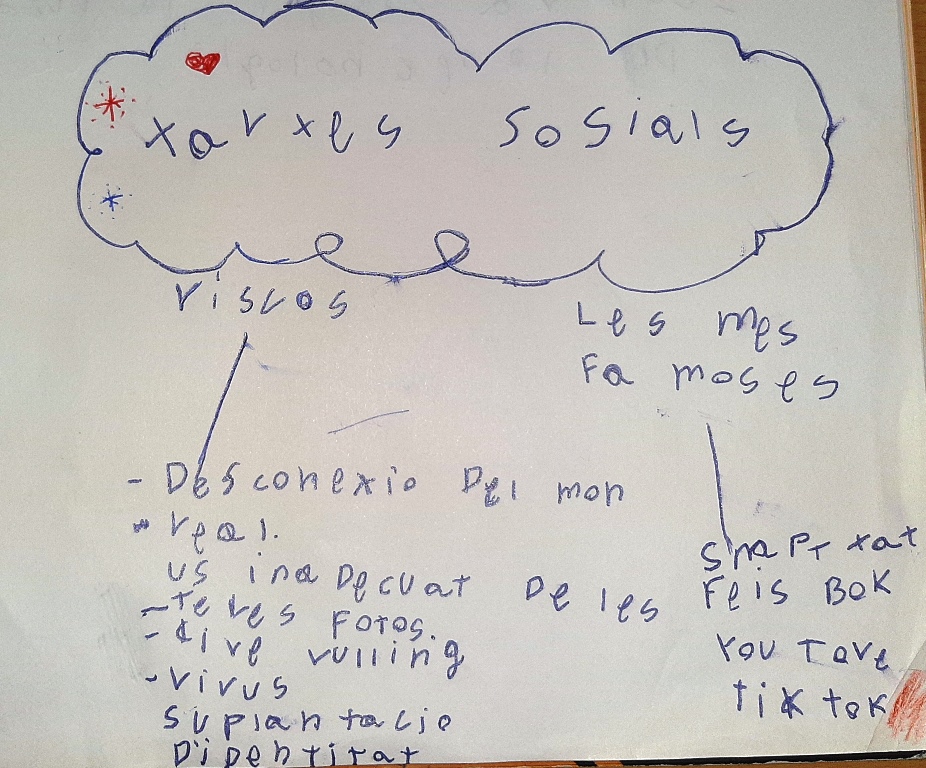 xarxes sosials
riscos
Les mes
Famoses
- Desconexio Del mon
real.
us inaDecuat De les
- teves Fotos.
- sive vulling
- virus
suplantacio
D'iDentitat
snapt xat
Feis Bok
You Tove
tik tok